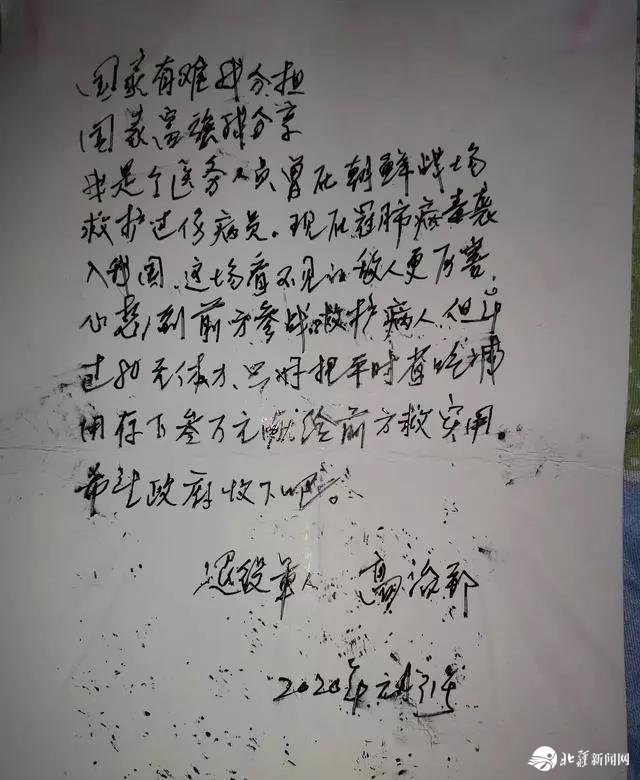 国家有难我分担
国家富强我分享
我是个医务人员曾在朝鲜战场
救护过伤病员。现在冠肺病毒袭
入我国,这场看不见的敌人更厉害,
心想到前方参战救护病人,但年
过80无体力,只好把平时省吃
用存下叁万元献给前方救灾用,
希望政府收下吧。
退役军人 高
2020年元月31号
北疆新闻网